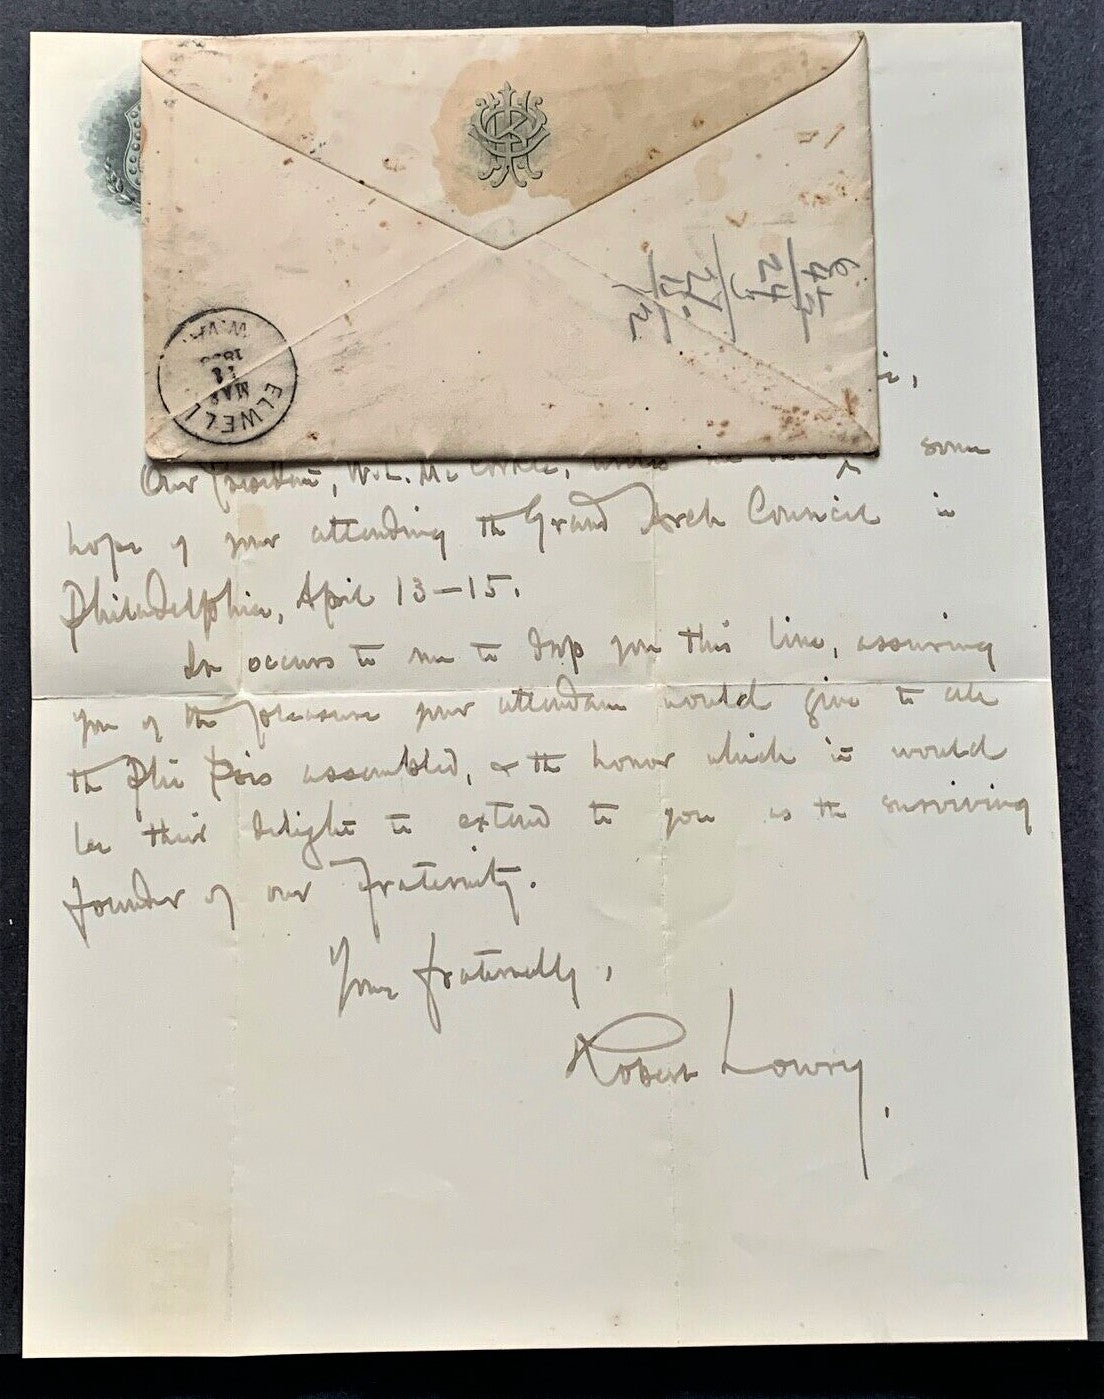 ELWELL
MAR
W.VA.
Our President, W.L. McCorkle, some
hope of your attending the Grand Arch Council in
Philadelphia, April 13-15.
It occurs to me to drop you this line, assuring
you of the pleasure your attendance would give to all
the Phi Psis assembled, & the honor which it would
be their delight to extend to you as the surviving
founder of our Fraternity.
Yours fraternally,
Robert Lowry.